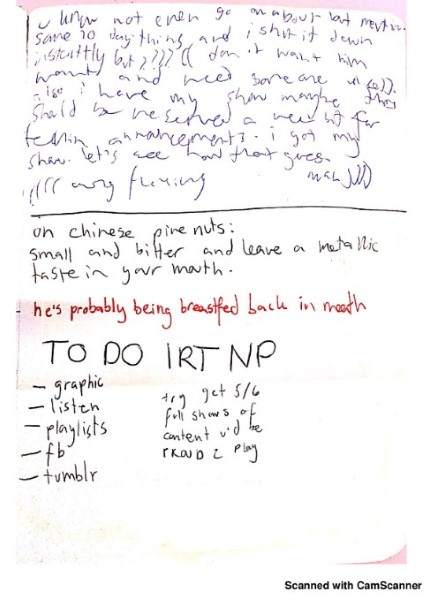 u know not even go on about but
same 10 day thing and i shut it down
instantly but ???? (( don't want him
want and need someone
also i have my show maybe
should be reserved a new bit for
announcements. i got my
show. let's see how that goes.
((((
on chinese pine nuts:
small and bitter and leave a metallic
taste in your mouth.
he's probably being breastfed back in
TO DO IRT NP
— graphic
— listen
— playlists
— fb
— tumblr
try get 5/6
full shows of
content u'd be
play
Scanned with CamScanner